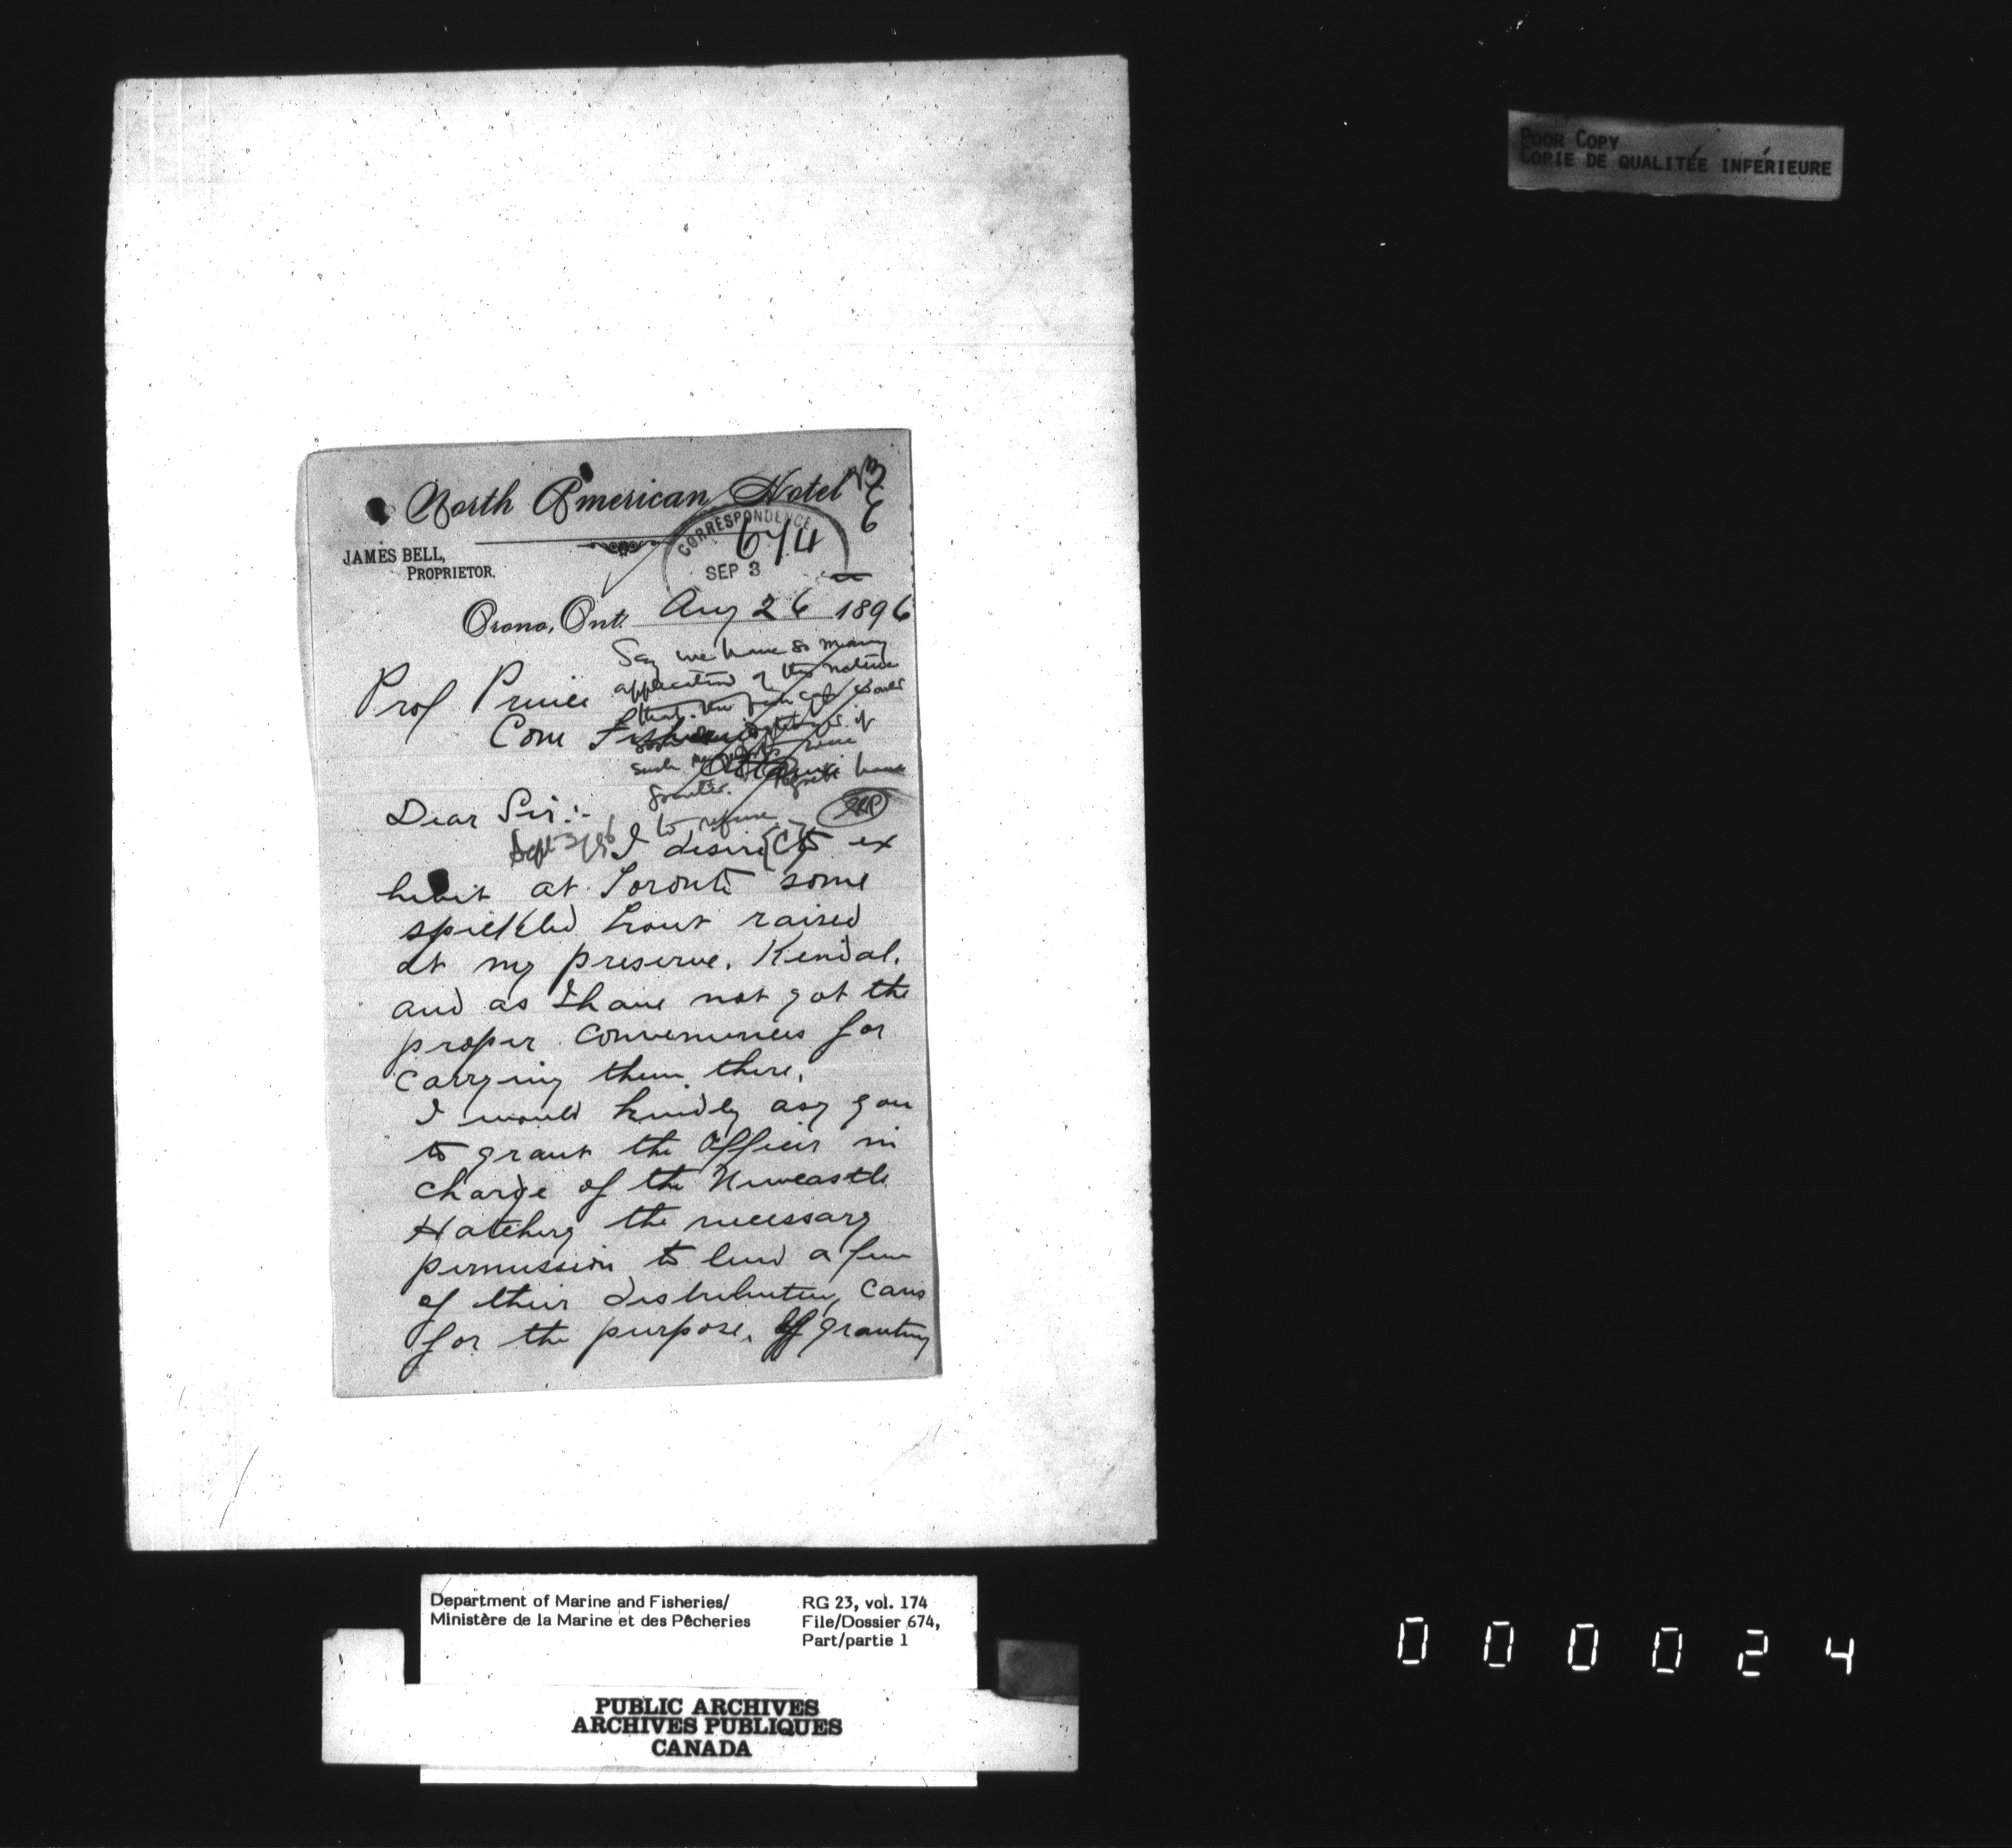 POOR COPY
COPIE DE QUALITÉE INFÉRIEURE
North American Hotel
CORRESPONDENCE
674
SEP 3
JAMES BELL,
PROPRIETOR.
Orono, Ont. Aug 26 1896
Say we have so many
application of this nature
that
such
granted. Regret have
to refuse
Prof Prince
Com Fisheries
Ottawa
Dear Sir:-
Sept 3/96 I desire to ex
hibit at Toronto some
speckled trout raised
at my preserve. Kendal.
and as I have not got the
proper conveniences for
carrying them there.
I would kindly ask you
to grant the Officer in
charge of the Newcastle
Hatchery the necessary
permission to lend a few
of their distributing cans
for the purpose. If granting
Department of Marine and Fisheries/
Ministère de la Marine et des Pêcheries
RG 23, vol. 174
File/Dossier 674,
Part/partie 1
PUBLIC ARCHIVES
ARCHIVES PUBLIQUES
CANADA
000024